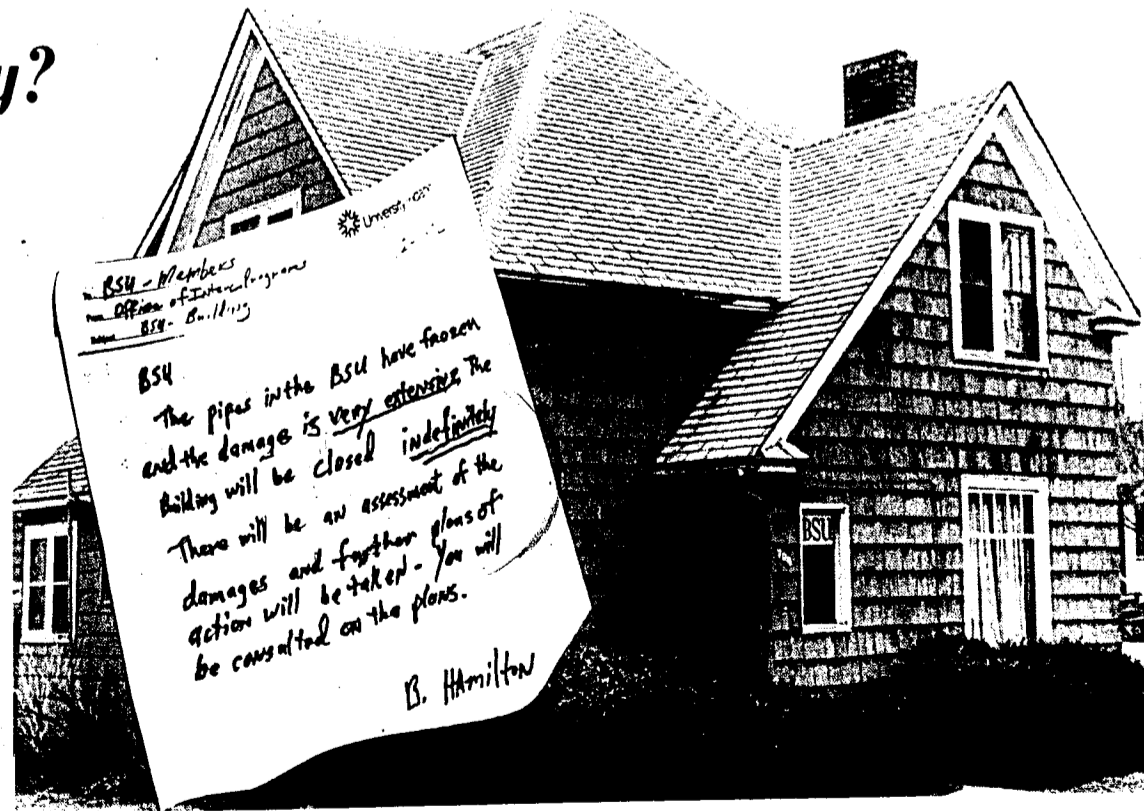 y?
University
To BSU - Members
From Office of Inter. Programs
Subject BSU - Building
BSU
The pipes in the BSU have frozen
and the damage is very extensive. The
Building will be closed indefinitely
There will be an assessment of the
damages and further plans of
action will be taken - You will
be consulted on the plans.
B. HAmiltoN
BSU